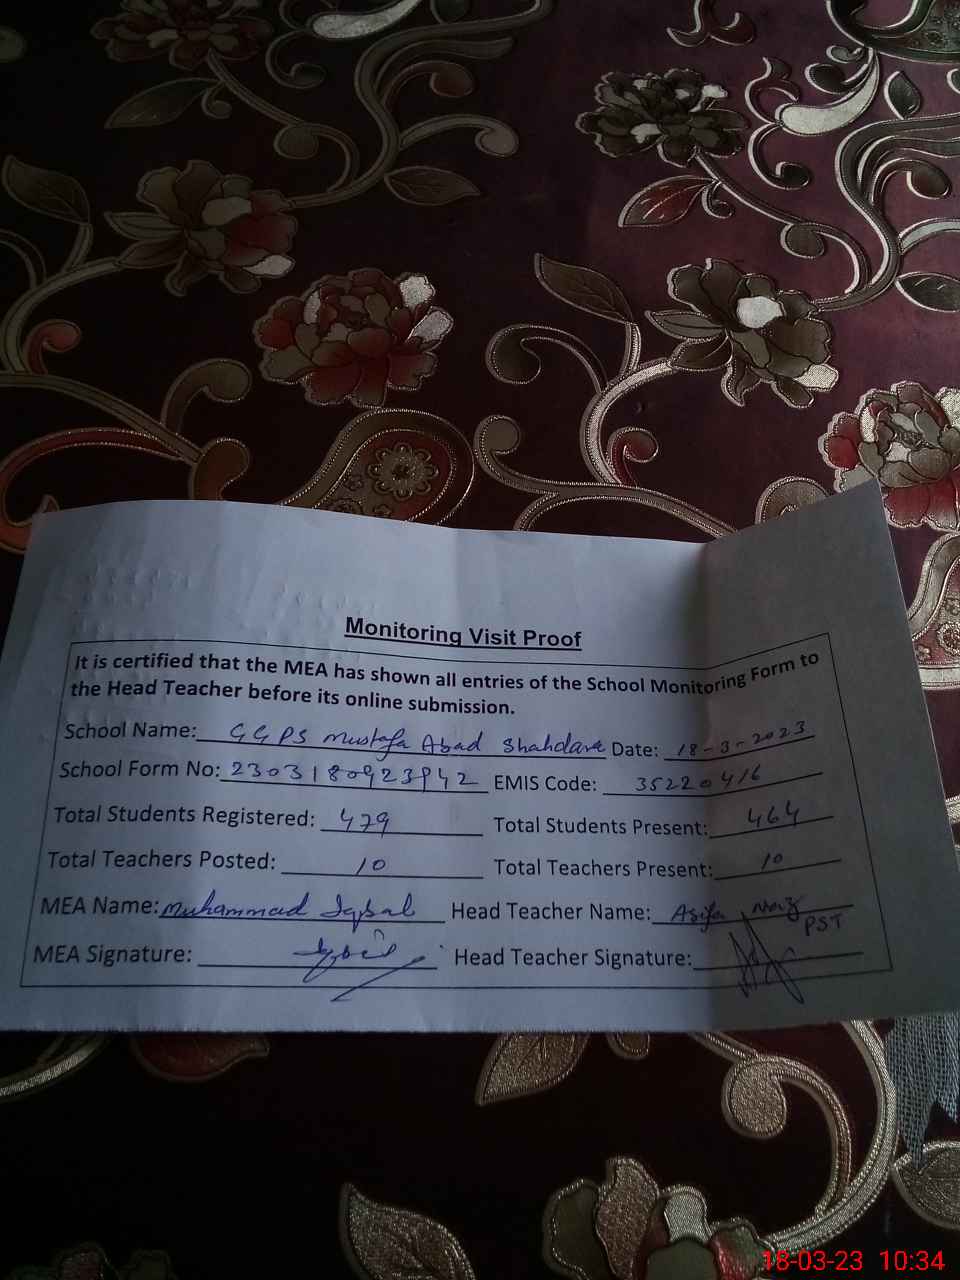 Monitoring Visit Proof
It is certified that the MEA has shown all entries of the School Monitoring Form to
the Head Teacher before its online submission.
School Name: GGPS Mustafa Abad Shahdara Date: 18-3-2023
School Form No: EMIS Code: 35220416
Total Students Registered: 479 Total Students Present: 464
Total Teachers Posted: 10 Total Teachers Present: 10
MEA Name: Muhammad Iqbal Head Teacher Name: Asifa
PST
MEA Signature: Iqbal Head Teacher Signature:
18-03-23 10:34